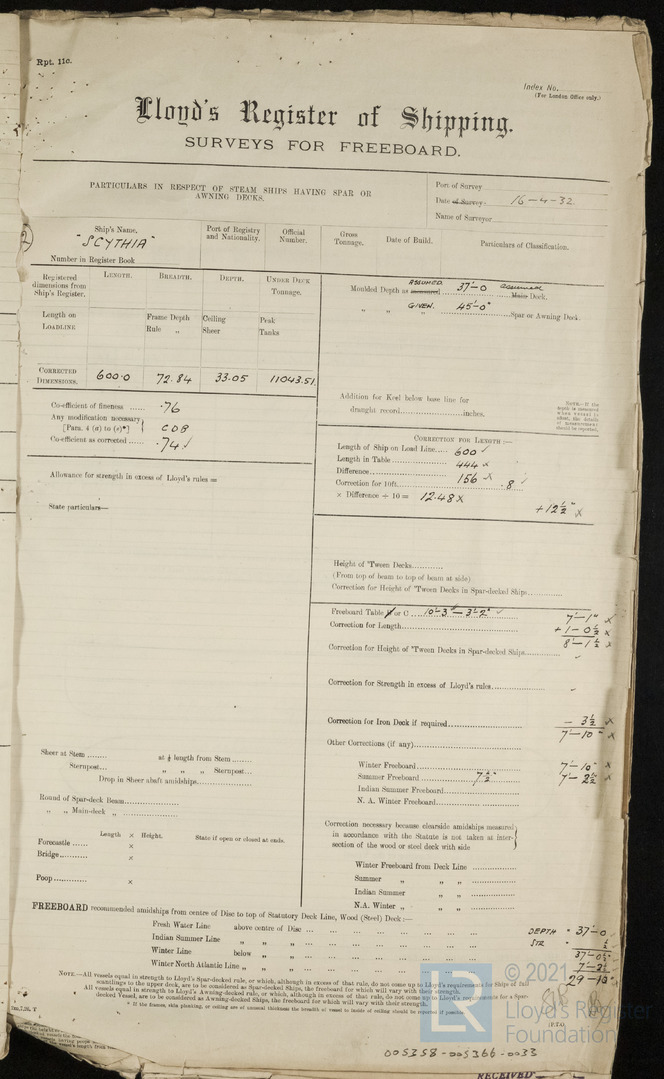 Rpt. 11c.
Index No.
(For London Office only.)
Lloyd's Register of Shipping.
SURVEYS FOR FREEBOARD.
PARTICULARS IN RESPECT OF STEAM SHIPS HAVING SPAR OR
AWNING DECKS.
Port of Survey
Date of Survey 16-4-32
Name of Surveyor
Ship's Name.
"SCYTHIA"
Number in Register Book
Port of Registry
and Nationality.
Official
Number.
Gross
Tonnage.
Date of Build.
Particulars of Classification.
Registered
dimensions from
Ship's Register.
LENGTH.
BREADTH.
DEPTH.
UNDER DECK
TONNAGE.
Length on
LOADLINE
Frame Depth
Rule „
Ceiling
Sheer
Peak
Tanks
CORRECTED
DIMENSIONS.
600·0
72.84
33.05
11043.51
Co-efficient of fineness ...... ·76
Any modification necessary
[Para. 4 (a) to (e)*] CDB
Co-efficient as corrected ...... ·74 ✓
Allowance for strength in excess of Lloyd's rules =
State particulars—
ASSUMED.
Moulded Depth as measured 37'-0 assumed Main Deck.
„ „ „ GIVEN. 45'-0" Spar or Awning Deck.
Addition for Keel below base line for
draught record......inches.
CORRECTION FOR LENGTH :—
Length of Ship on Load Line..... 600 ✓
Length in Table ..... 444 x
Difference..... 156 x
Correction for 10ft..... ·8 ✓
× Difference ÷ 10 = 12.48 x
+12½" x
Height of 'Tween Decks............
(From top of beam to top of beam at side)
Correction for Height of 'Tween Decks in Spar-decked Ships............
Freeboard Table or C ... 10'-3" - 3'-2" ✓ 7'-1" x
Correction for Length..... +1-0½ x
8'-1½ x
Correction for Height of 'Tween Decks in Spar-decked Ships.....
Correction for Strength in excess of Lloyd's rules.....
Correction for Iron Deck if required..... - 3½ x
7'-10" x
Other Corrections (if any).....
Winter Freeboard..... 7'-10" x
Summer Freeboard ..... 7½" 7'-2½ x
Indian Summer Freeboard.....
N. A. Winter Freeboard.....
Correction necessary because clearside amidships measured
in accordance with the Statute is not taken at inter-
section of the wood or steel deck with side
Winter Freeboard from Deck Line ...............
Summer „ „ „ ...............
Indian Summer „ „ „ ...............
N.A. Winter „ „ „ ...............
Sheer at Stem ........ at ⅛ length from Stem ........
Sternpost... „ „ „ Sternpost...
Drop in Sheer abaft amidships.....
Round of Spar-deck Beam.....
„ „ Main-deck „ .....
Length × Height. State if open or closed at ends.
Forecastle ...... ×
Bridge........... ×
Poop............ ×
FREEBOARD recommended amidships from centre of Disc to top of Statutory Deck Line, Wood (Steel) Deck :—
Fresh Water Line above centre of Disc ...
Indian Summer Line „ „ „ ...
Winter Line below „ „ ...
Winter North Atlantic Line „ „ „ ...
DEPTH 37'-0
STR ½
37'-0½
7'-2½
29-10"
NOTE—All vessels equal in strength to Lloyd's Spar-decked rule, or which, although in excess of that rule, do not come up to Lloyd's requirements for Ships of full
scantlings to the upper deck, are to be considered as Spar-decked Ships, the freeboard for which will vary with their strength.
All vessels equal in strength to Lloyd's Awning-decked rule, or which, although in excess of that rule, do not come up to Lloyd's requirements for a Spar-
decked Vessel, are to be considered as Awning-decked Ships, the freeboard for which will vary with their strength.
[P.T.O.
© 2021
LR
Lloyd's Register
Foundation
005358-005366-0033
RECEIVED